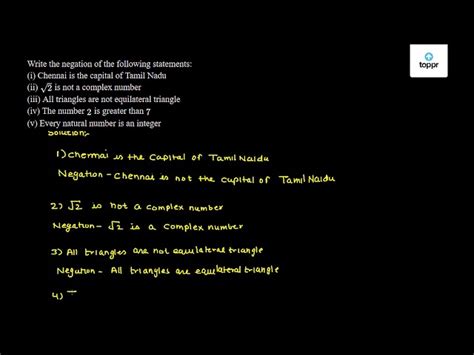 toppr
Write the negation of the following statements:
(i) Chennai is the capital of Tamil Nadu
(ii) √2 is not a complex number
(iii) All triangles are not equilateral triangle
(iv) The number 2 is greater than 7
(v) Every natural number is an integer
Solution:-
1) Chennai is the Capital of Tamil Naidu
Negation - Chennai is not the capital of Tamil Naidu
2) √2 is not a complex number
Negation - √2 is a complex number
3) All triangles are not equilateral triangle
Negation - All triangles are equilateral triangle
4) T